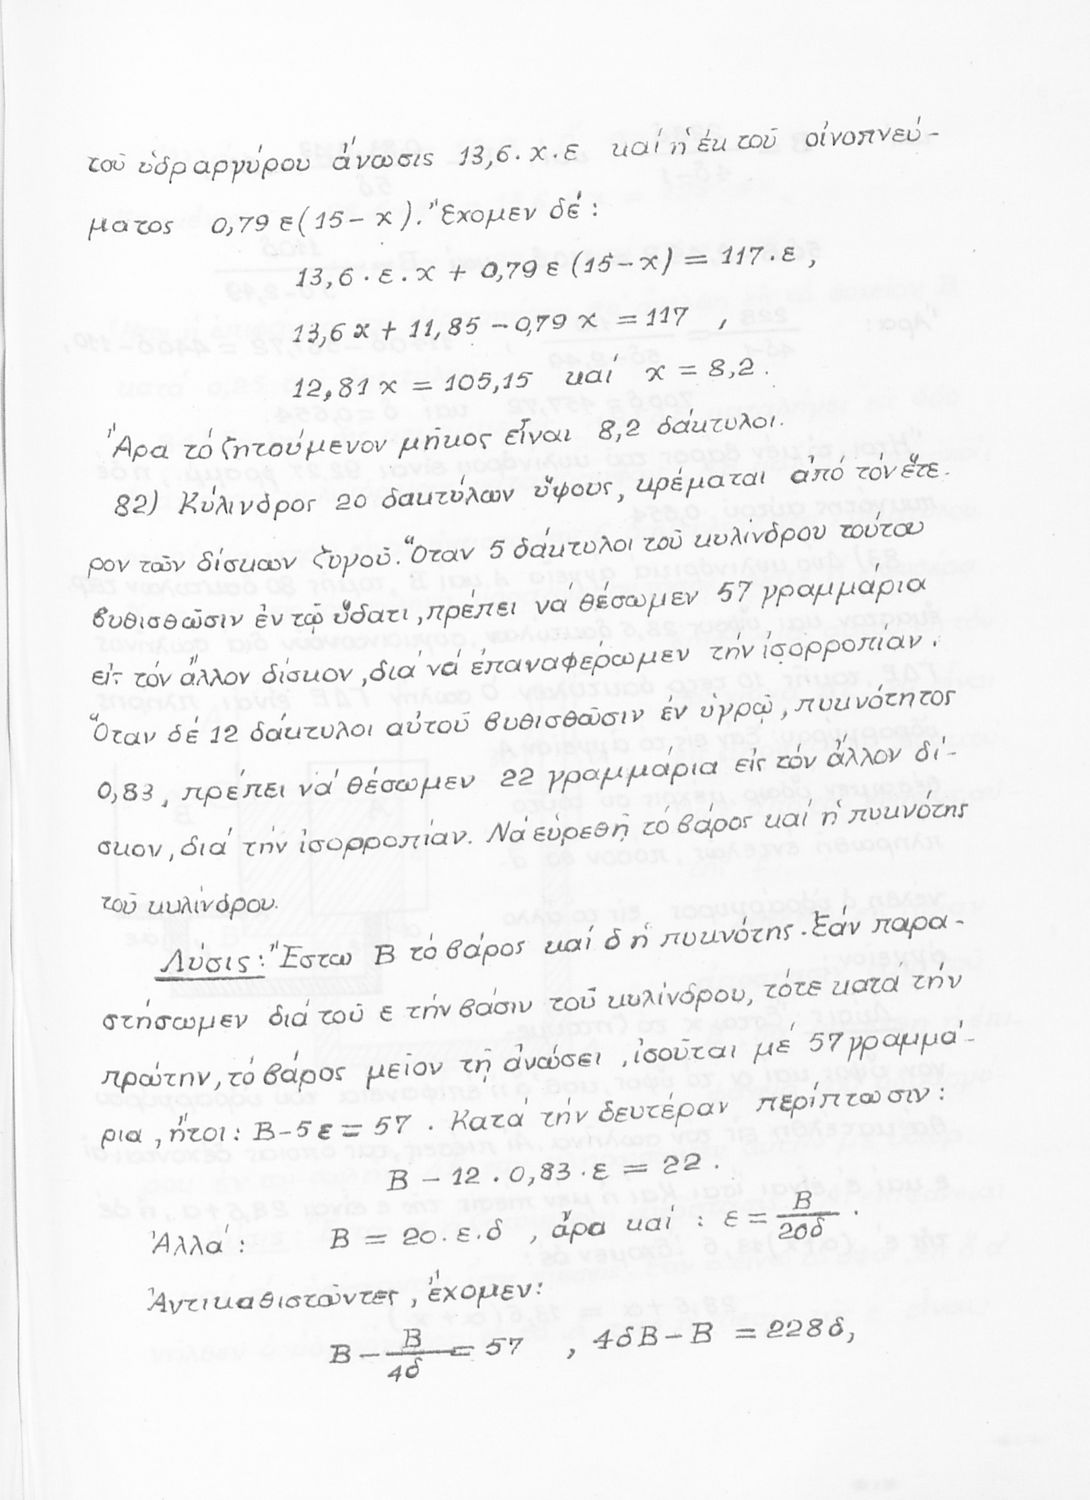 τοῦ ὑδραργύρου ἄνωσις 13,6. χ. ε καί ἡ ἐκ τοῦ οἰνοπνεύ-
ματος 0,79 ε(15-χ). Ἔχομεν δέ:
13,6 . ε . χ + 0,79 ε (15-χ) = 117. ε ,
13,6 χ + 11,85 - 0,79 χ = 117 ,
12,81 χ = 105,15 καί χ = 8,2 .
Ἄρα τό ζητούμενον μῆκος εἶναι 8,2 δάκτυλοι.
82) Κύλινδρος 20 δακτύλων ὕψους, κρέμαται ἀπό τόν ἕτε-
ρον τῶν δίσκων ζυγοῦ. Ὅταν 5 δάκτυλοι τοῦ κυλίνδρου τούτου
βυθισθῶσιν ἐν τῷ ὕδατι, πρέπει νά θέσωμεν 57 γραμμάρια
εἰς τόν ἄλλον δίσκον, δια νά ἐπαναφέρωμεν τήν ἰσορροπίαν.
Ὅταν δέ 12 δάκτυλοι αὐτοῦ βυθισθῶσιν ἐν ὑγρῷ, πυκνότητος
0,83, πρέπει νά θέσωμεν 22 γραμμάρια εἰς τόν ἄλλον δί-
σκον, διά τήν ἰσορροπίαν. Νά εὑρεθῇ τό βάρος καί ἡ πυκνότης
τοῦ κυλίνδρου.
Λύσις: Ἔστω Β τό βάρος καί δ ἡ πυκνότης. Ἐάν παρα-
στήσωμεν διά τοῦ ε τήν βάσιν τοῦ κυλίνδρου, τότε κατά τήν
πρώτην, τό βάρος μεῖον τῇ ἀνώσει, ἰσοῦται μέ 57 γραμμά-
ρια, ἤτοι: Β-5ε = 57 . Κατά τήν δευτέραν περίπτωσιν:
Β - 12 . 0,83 . ε = 22 .
Ἀλλά: Β = 20. ε. δ , ἄρα καί : ε = Β/20δ .
Ἀντικαθιστῶντες, ἔχομεν:
Β - Β/4δ = 57 , 4δΒ - Β = 228δ,